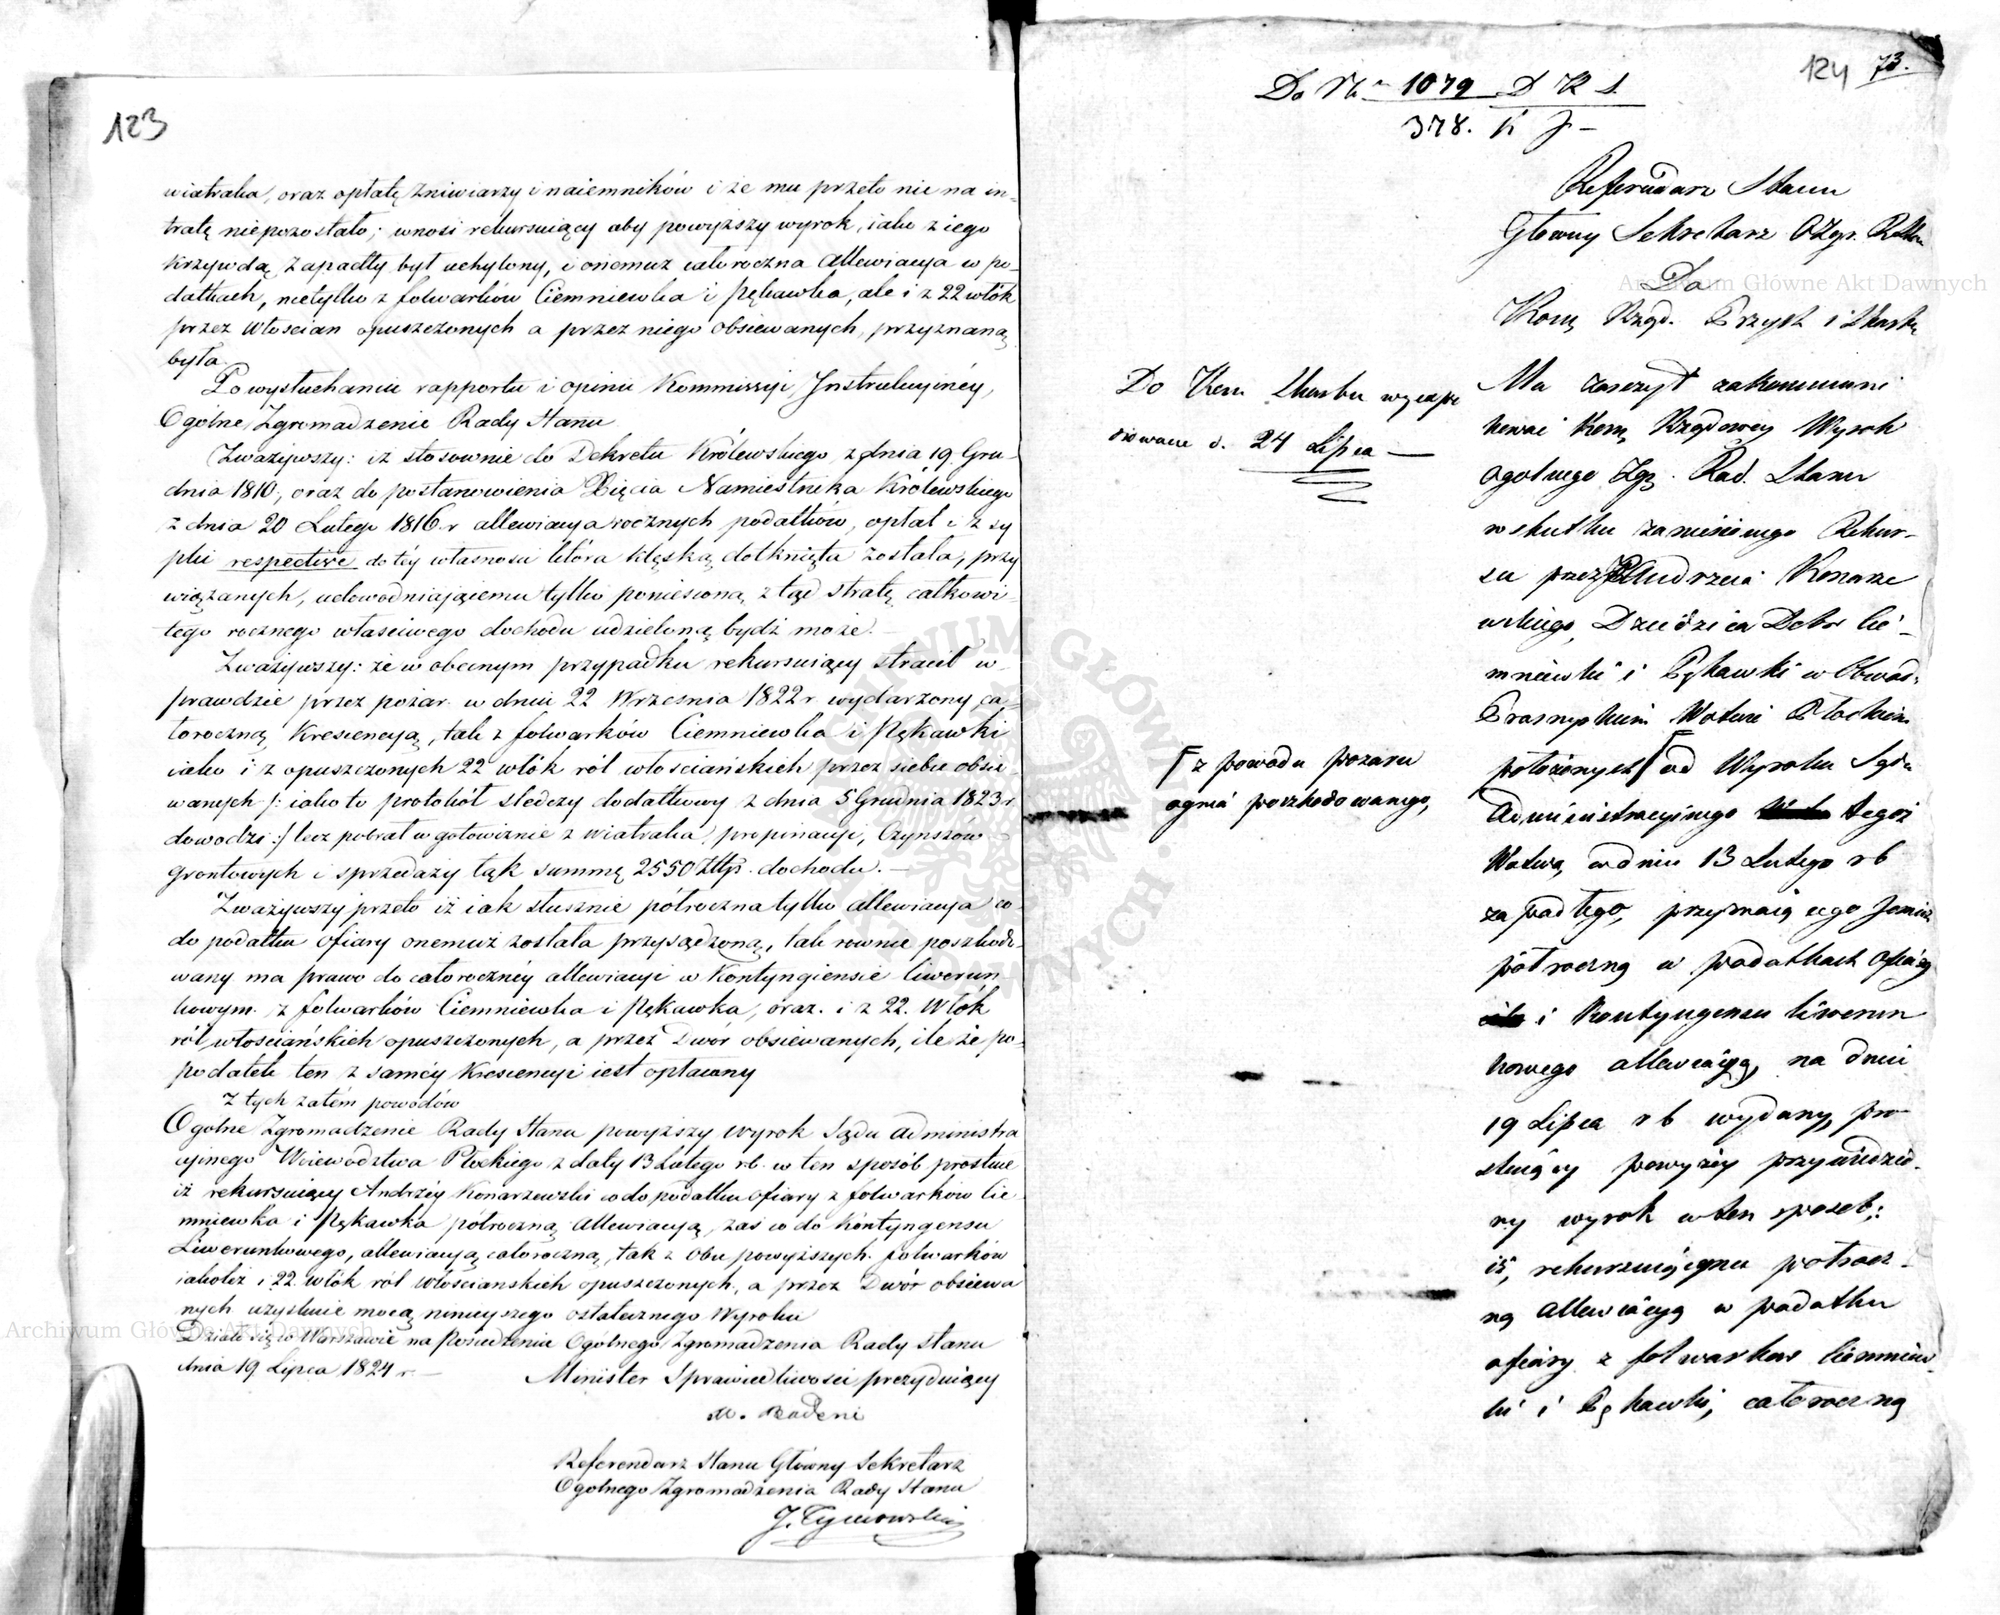 123
wiatraka, oraz opłatę żniwiarzy i naiemników i że mu przeto nic na in-
tratę niepozostało; wnosi rekursuiący aby powyższy wyrok, iako z iego
krzywdą zapadły był uchylony, i onemuż całoroczna allewiacya w po-
datkach, nietylko z folwarków Ciemniewka i Pękawka, ale i z 22 włók
przez Włościan opuszczonych a przez niego obsiewanych, przyznaną
była.
Po wysłuchaniu rapportu i opinii Kommissyi Instrukcyinéy,
Ogólne Zgromadzenie Rady Stanu
Zważywszy: iż stosownie do Dekretu Królewskiego z dnia 19. Gru-
dnia 1810, oraz do postanowienia Xięcia Namiestnika Królewskiego
z dnia 20 Lutego 1816 r allewiacya rocznych podatków, opłat i zsy
pki respective do téy własności która klęską dotknięta została, przy
wiązanych, udowodniaiącemu tylko poniesioną ztąd stratę całkowi-
tego rocznego właściwego dochodu udzieloną bydź może. —
Zważywszy: że w obecnym przypadku rekursuiący stracił w-
prawdzie przez pożar w dniu 22 Września 1822 r. wydarzony, ca-
łoroczną krescencyą, tak z folwarków Ciemniewka i Pękawki
iako i z opuszczonych 22 włók ról włościańskich przez siebie obsie
wanych /: iako to protokół śledczy dodatkowy z dnia 5 Grudnia 1823 r.
dowodzi :/ lecz pobrał w gotowiznie z wiatraka, propinacyi, Czynszów
gruntowych i sprzedaży łąk summę 2550 Złtp. dochodu. —
Zważywszy przeto iż iak słusznie półroczna tylko allewiacya co
do podatku Ofiary onemuż została przysądzoną, tak rownie poszkodo-
wany ma prawo do całorocznéy allewiacyi w Kontyngiensie liwerun
kowym z folwarków Ciemniewka i Pękawka, oraz i z 22. Włók
ról włościańskich opuszczonych, a przez Dwór obsiewanych, ile że po-
podatek ten z saméy krescencyi iest opłacany
Z tych zatém powodów
Ogólne Zgromadzenie Rady Stanu powyższy Wyrok Sądu Administra
cyinego Woiewództwa Płockiego z daty 13 Lutego r.b. w ten sposób prostuie
iż rekursuiący Andrzéy Konarzewski co do podatku ofiary z folwarków Cie
mniewka i Pękawka półroczną allewiacyą, zaś co do kontyngensu
Liwerunkowego, allewiacyą całoroczną, tak z obu powyższych folwarków
iakoteż i 22 włók ról włościanskich opuszczonych, a przez Dwór obsiewa
nych uzyskuie mocą ninieyszego ostatecznego Wyroku
Działo się w Warszawie na Posiedzeniu Ogólnego Zgromadzenia Rady Stanu
dnia 19 Lipca 1824 r. —
Minister Sprawiedliwości prezyduiący
M. Badeni
Referendarz Stanu Główny Sekretarz
Ogólnego Zgromadzenia Rady Stanu
J. Tymowski
124 73.
Do Nr 1079 D K S.
378. K J —
Referendarz Stanu
Główny Sekretarz OZgr. R Stanu
Do
Kom Rząd. Przych i Skarbu
Do Kom Skarbu wyexpe
diowane d. 24 Lipca —
Ma zaszczyt zakommuni
kować Kom Rządowey Wyrok
Ogolnego Zgr. Rad. Stanu
w skutku zaniesionego Rekur-
su przez Andrzeia Konarze
wskiego, Dziedzica Dobr Cie-
mniewki i Pękawki w Obwod.
Prasnyskim Wotwie Płockim
położonych od Wyroku Sądu
z powodu pożaru
ognia poszkodowanego,
Administracyinego tegoż
Wotwa w dniu 13 Lutego r b
zapadłego, przyznaiącego Jemuż
półroczną w podatkach Ofiary
i Kontyngensu liwerun
kowego allewiacyą, na dniu
19 Lipca r b wydany, pro
stuiący powyżéy przywiedzio-
ny wyrok w ten sposób;
iż, rekursuiącemu półrocz-
ną allewiacyą w podatku
ofiary z folwarkow Ciemniew-
ki i Pękawki, całoroczną
Archiwum Główne Akt Dawnych
Archiwum Główne Akt Dawnych
ARCHIWUM GŁÓWNE AKT DAWNYCH